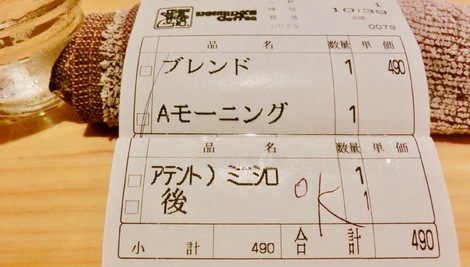 Coffee
10:35
シリアル 0079
品名 数量 単価
ブレンド 1 490
Aモーニング 1
品名 数量 単価
アテント) ミニシロ 1
後 1
OK
小計 490 合計 490